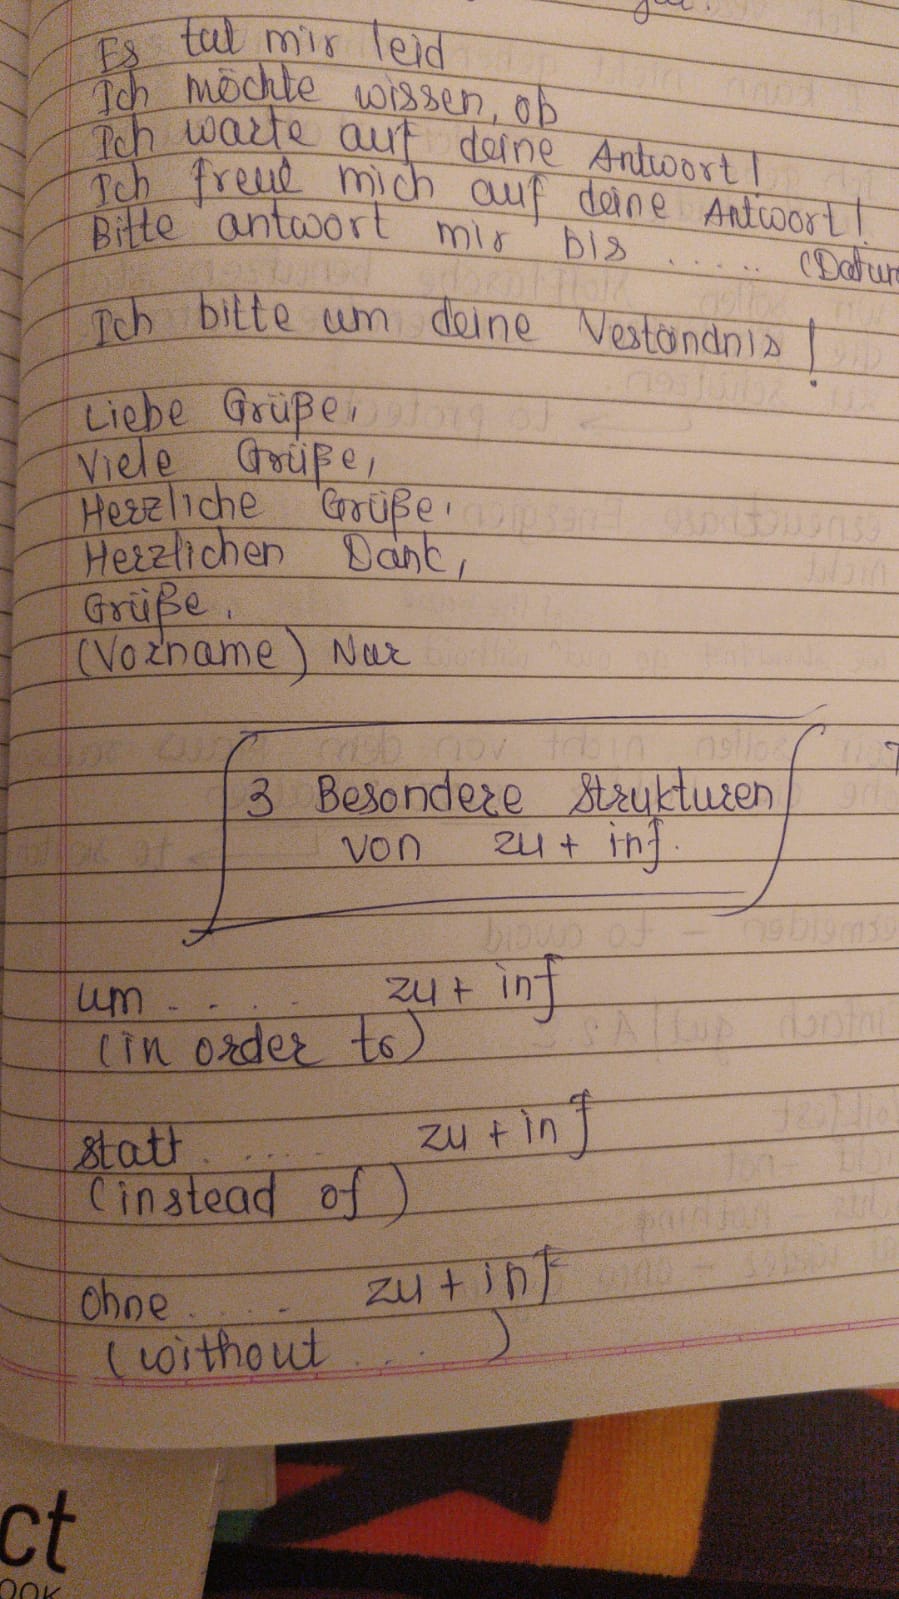 Es tat mir leid
Ich möchte wissen, ob
Ich warte auf deine Antwort!
Ich freue mich auf deine Antwort!
Bitte antwort mir bis ...... (Datum
Ich bitte um deine Veständnis!
Liebe Grüße,
Viele Grüße,
Herzliche Grüße,
Herzlichen Dank,
Grüße,
(Vorname) Nur
3 Besondere Strukturen
von zu + inf.
um ..... zu + inf
(in order to)
statt ...... zu + inf
(instead of)
ohne ..... zu + inf
(without ....)
ct
OOK